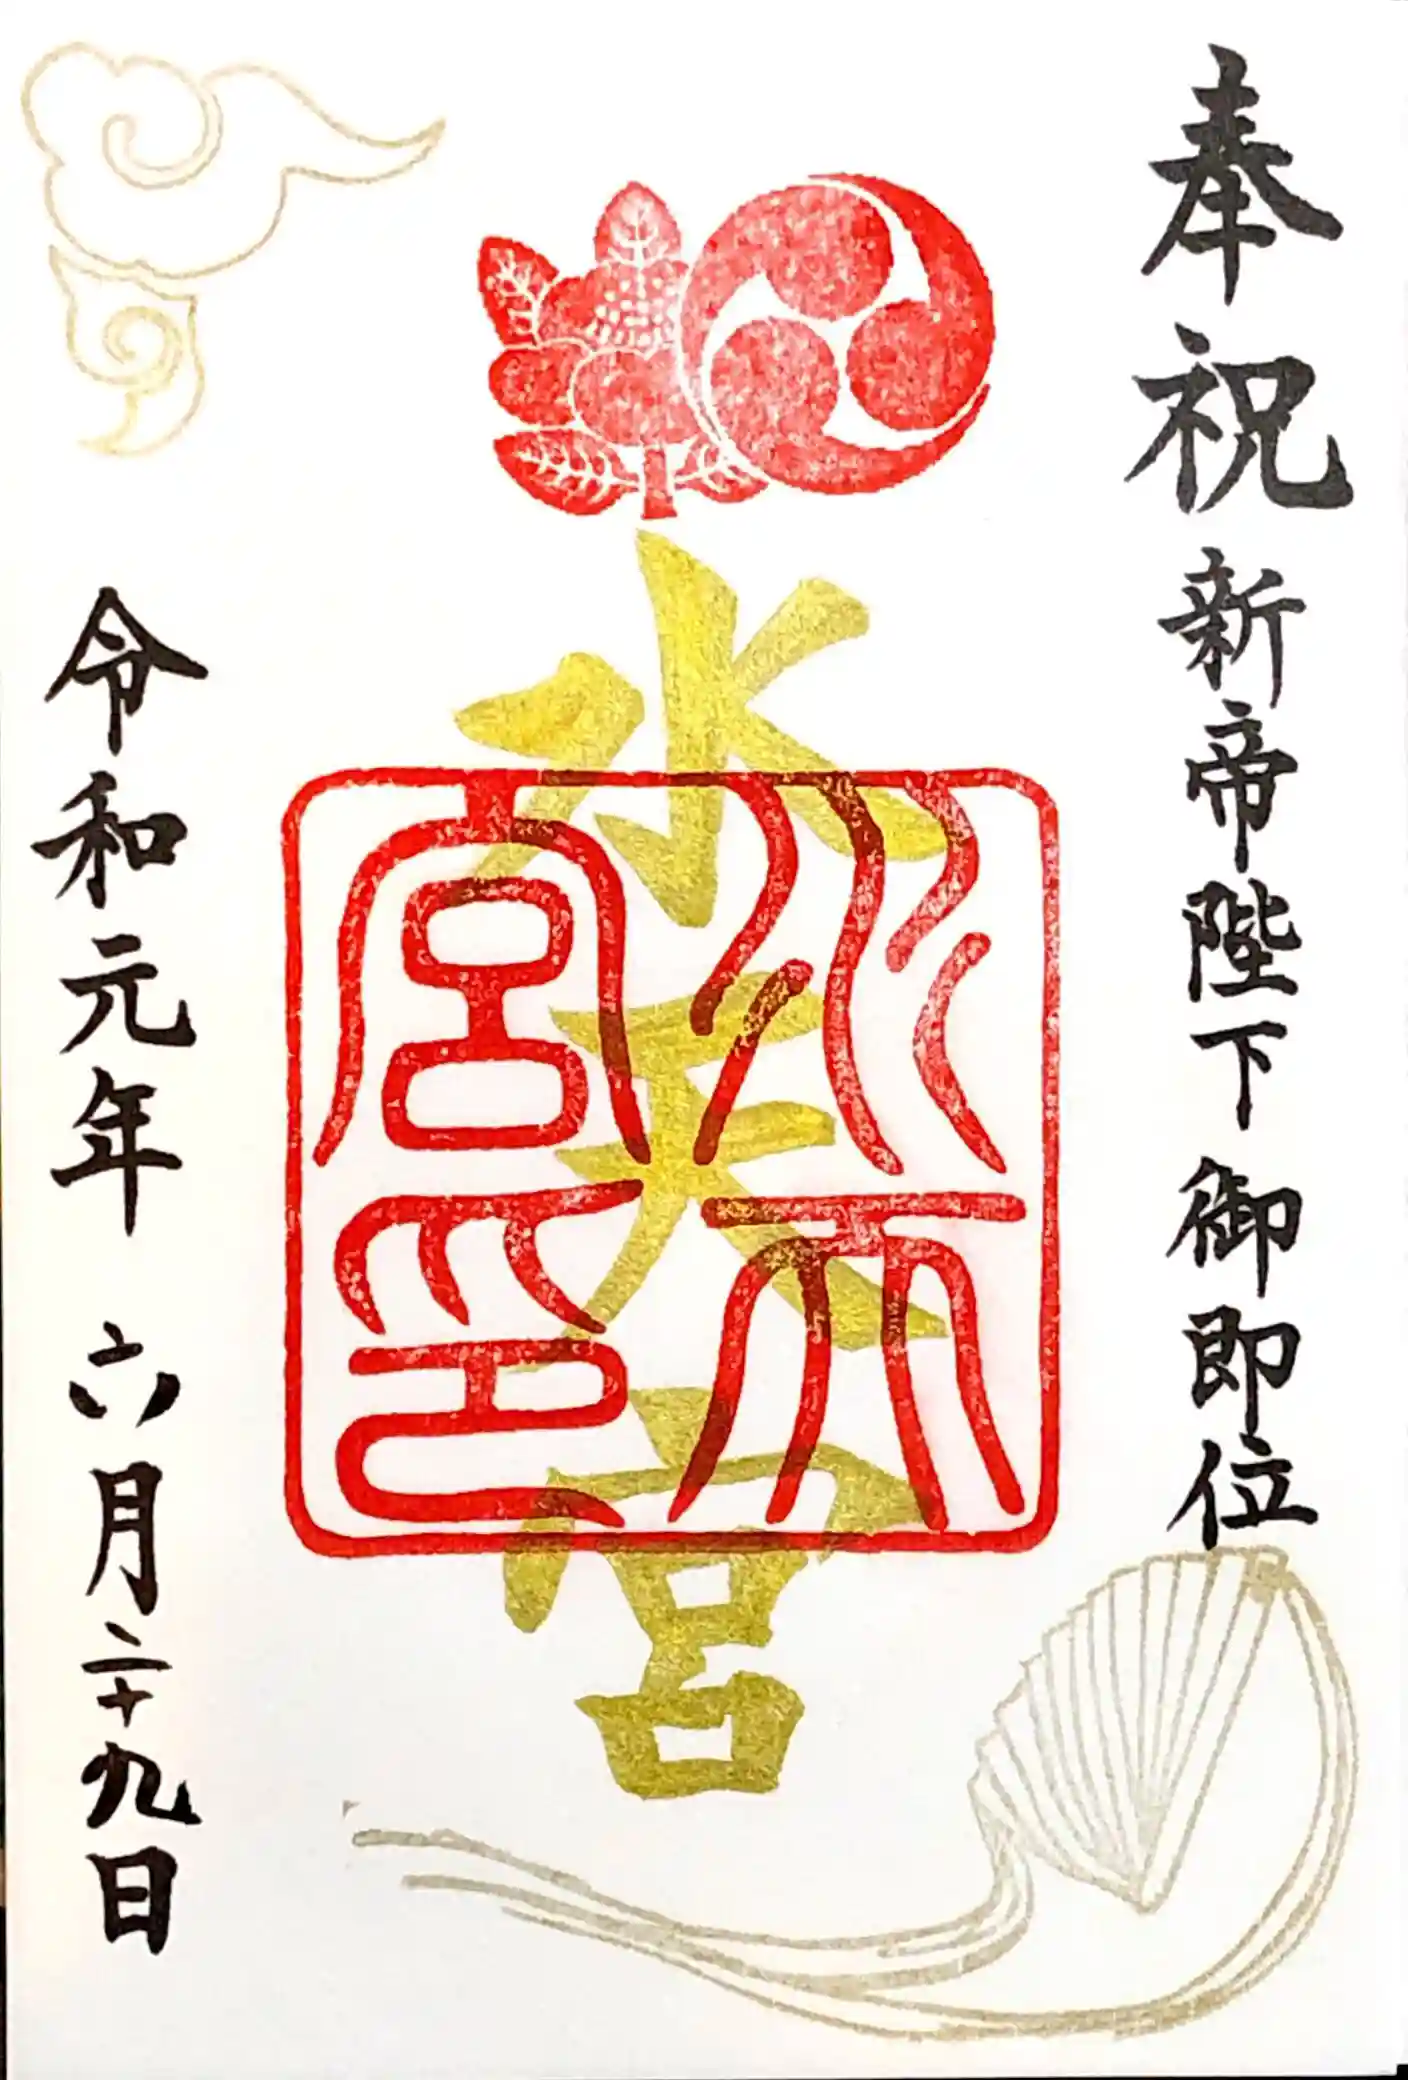 奉祝 新帝陛下 御即位
水天宮
水天宮印
令和元年 六月二十九日